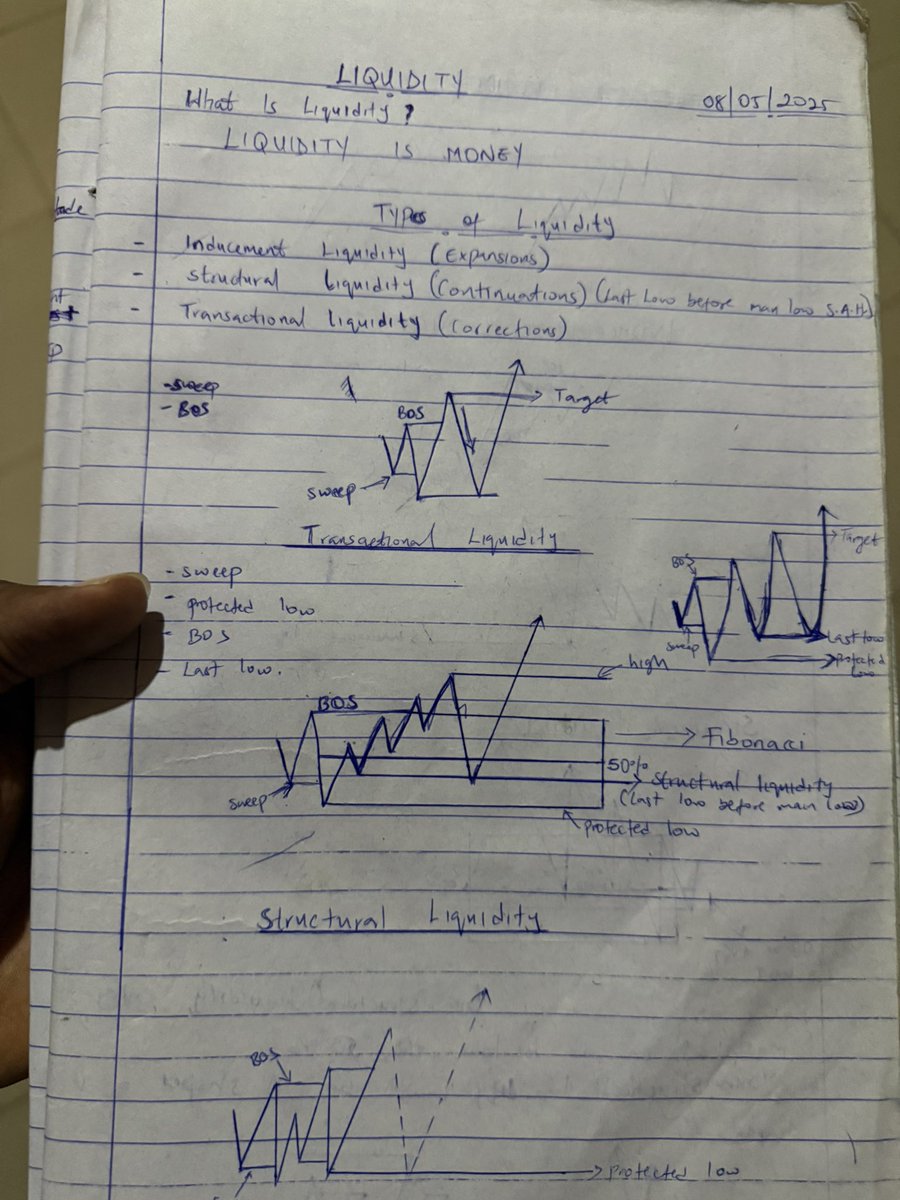 LIQUIDITY
What Is Liquidity?
08/05/2025
LIQUIDITY IS MONEY
Types of Liquidity
- Inducement Liquidity (Expansions)
- Structural Liquidity (Continuations) (Last Low before man low S.A.H)
- Transactional liquidity (Corrections)
- sweep
- BOS
BOS
Target
sweep
Transactional Liquidity
- sweep
- protected low
- BOS
- Last low.
BOS
Target
sweep
Last low
Protected low
high
BOS
Fibonacci
50%
Structural liquidity
(Last low before man low)
sweep
protected low
Structural Liquidity
BOS
protected low